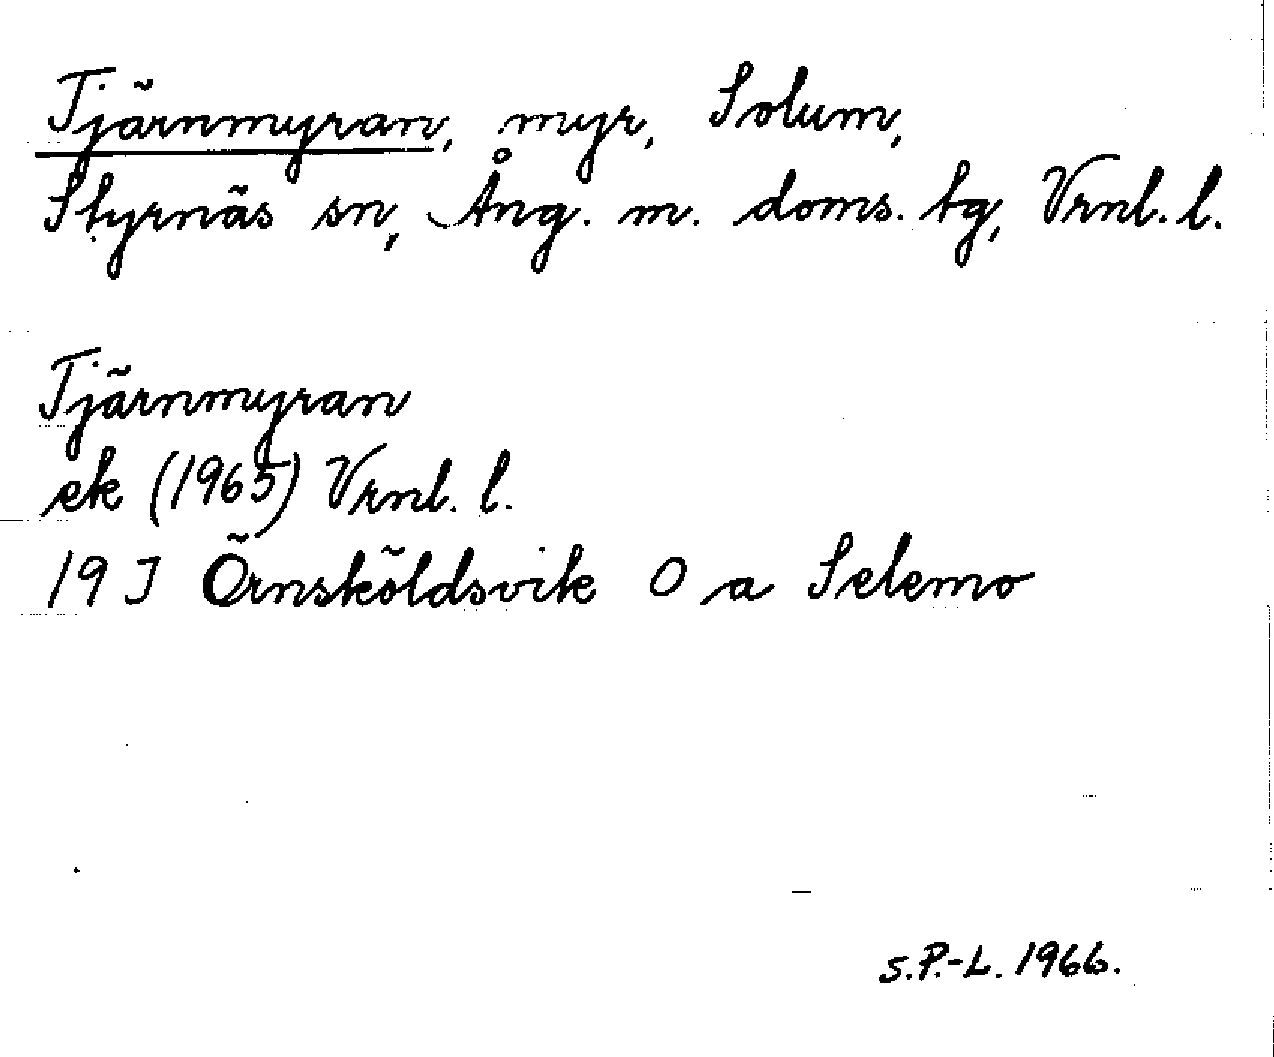 Tjärnmyran, myr, Solum,
Styrnäs sn, Ång. m. doms. tg, Vrnl. l.
Tjärnmyran
ek (1965) Vrnl. l.
19 J Örnsköldsvik O a Selemo
S.P.-L. 1966.